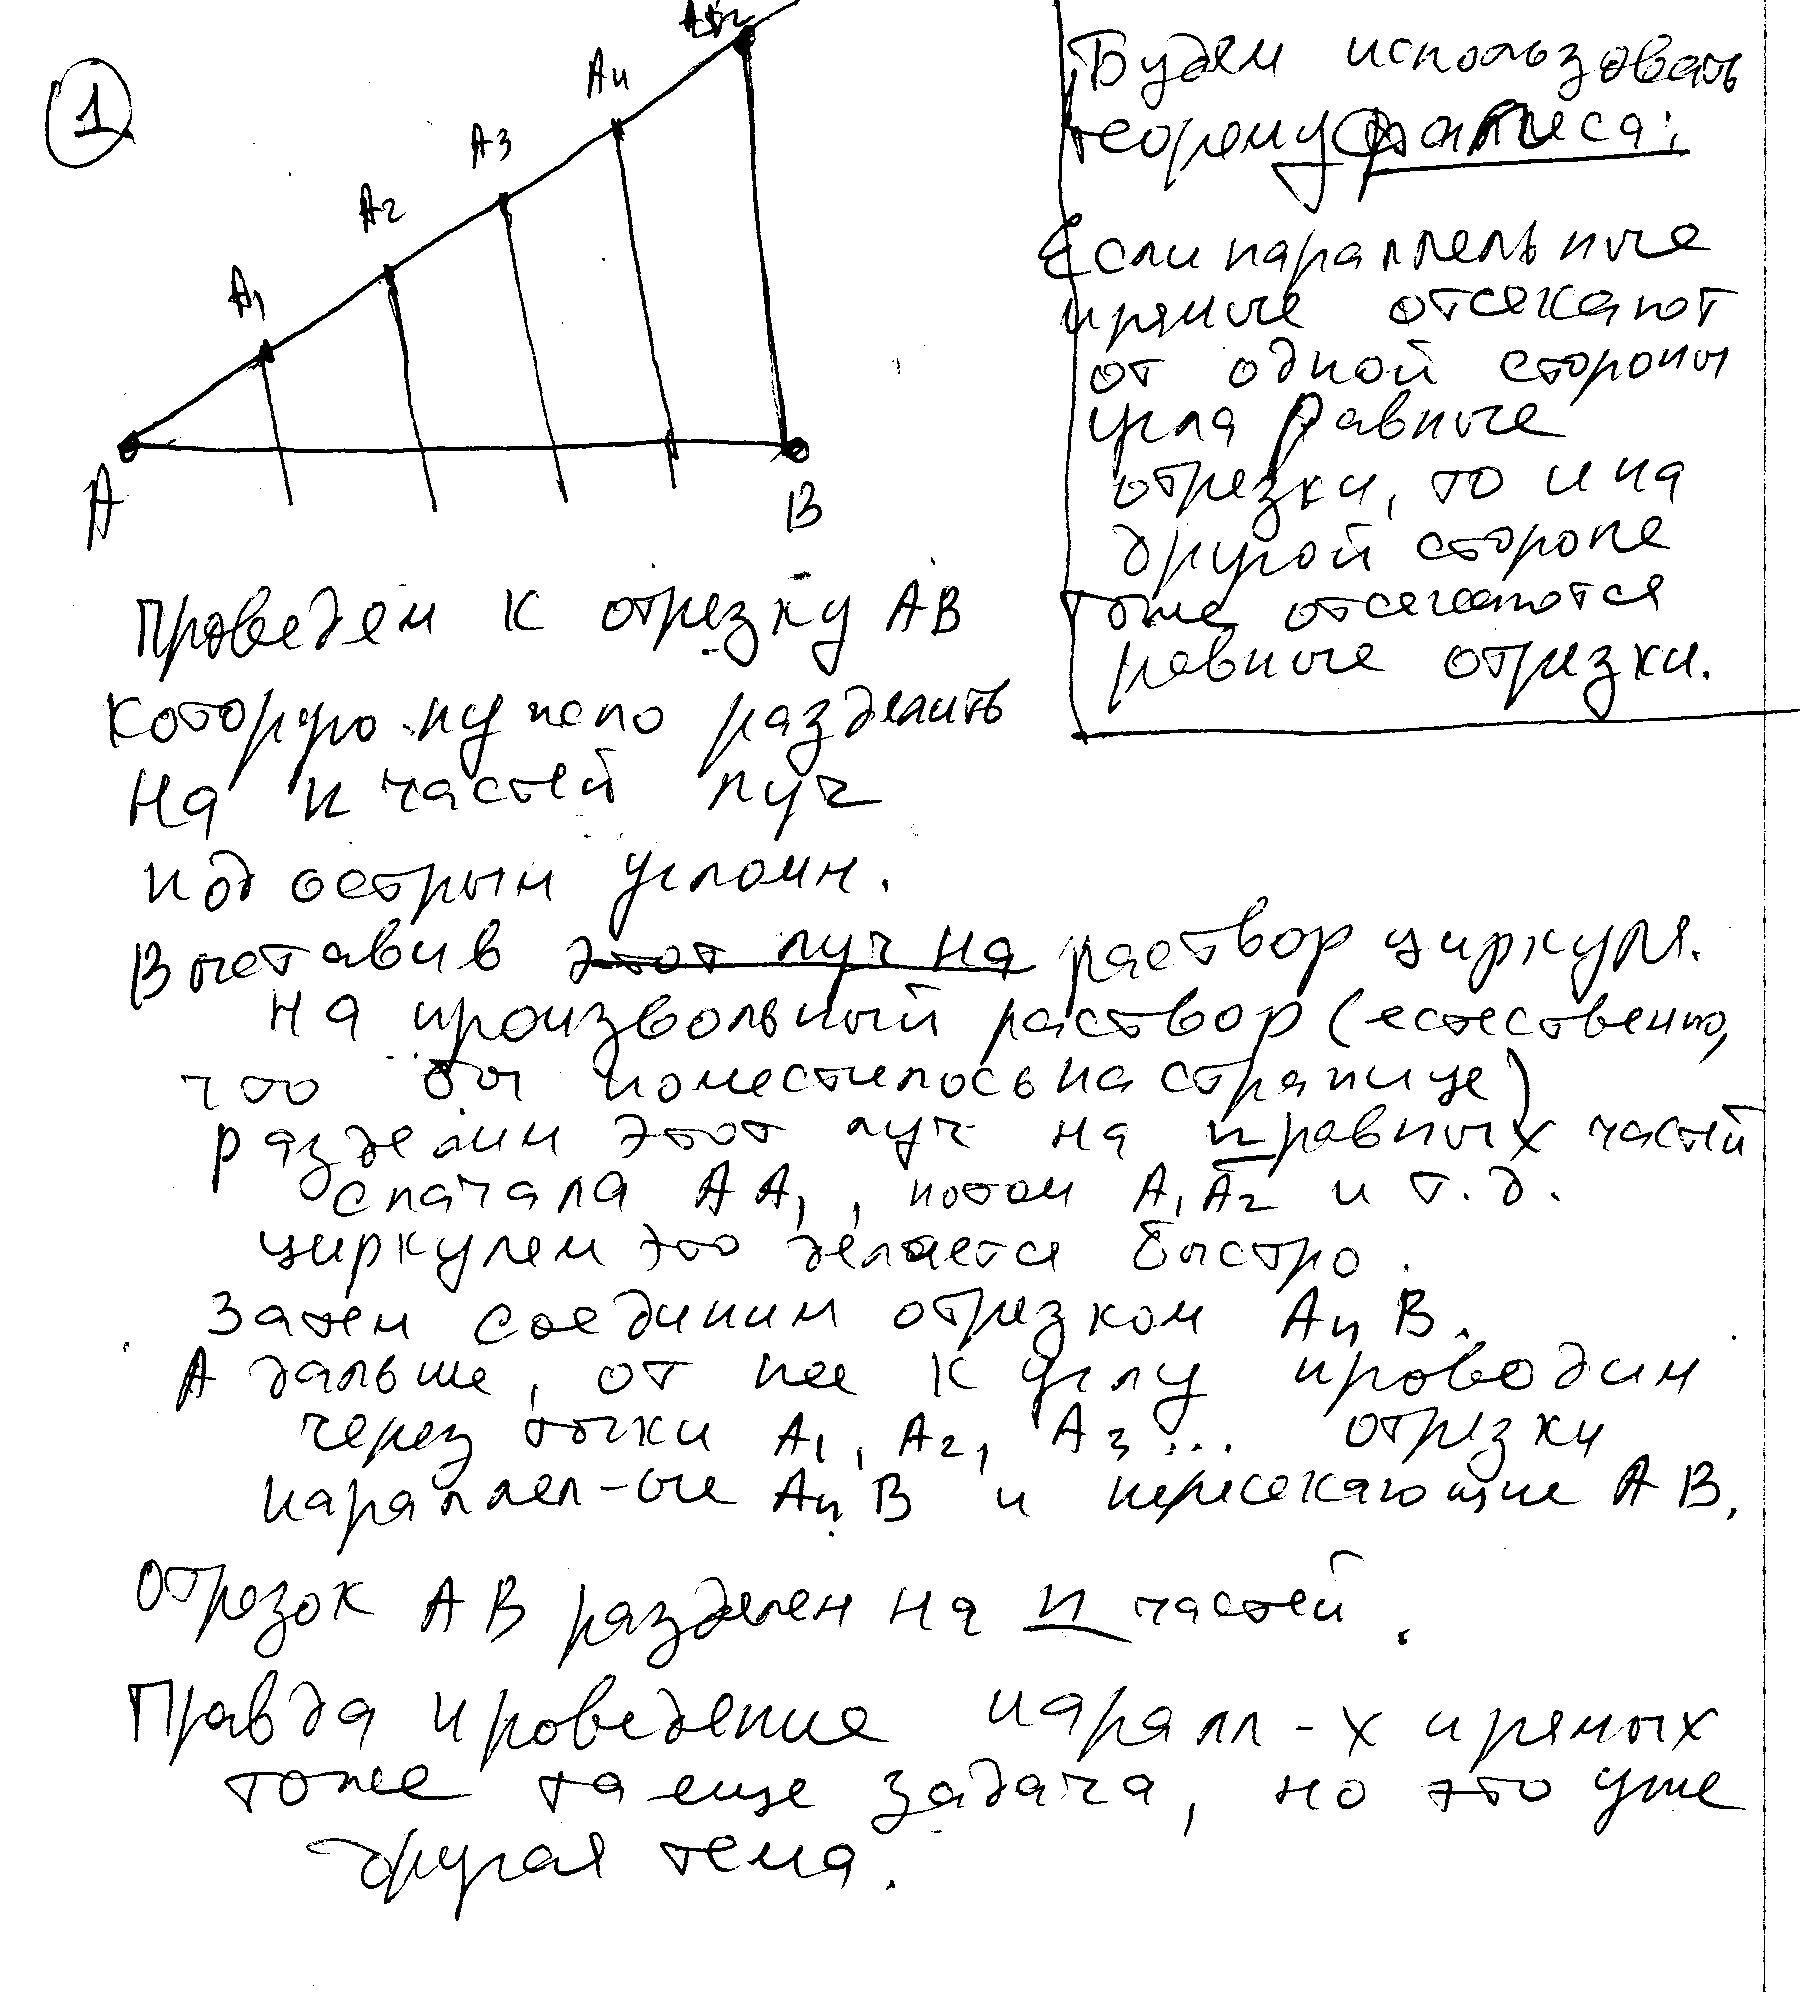 1
A
A1
A2
A3
A4
B
Будем использовать
теорему Фалеса:
Если параллельные
прямые отсекают
от одной стороны
угла равные
отрезки, то и на
другой стороне
тоже отсекаются
равные отрезки.
Проведем к отрезку AB
который нужно разделить
на n частей луч
под острым углом.
Выставив этот луч на раствор циркуля.
на произвольный раствор (естественно,
что бы поместилось на странице)
разделим этот луч на n равных частей
сначала AA1, потом A1A2 и т.д.
циркулем это делается быстро.
Затем соединим отрезком AnB.
А дальше, от нее к углу проводим
через точки A1, A2, A3... отрезки
параллел-ые AnB и пересекающие AB.
Отрезок AB разделен на n частей.
Правда проведение паралл-х прямых
тоже та еще задача, но это уже
другая тема.